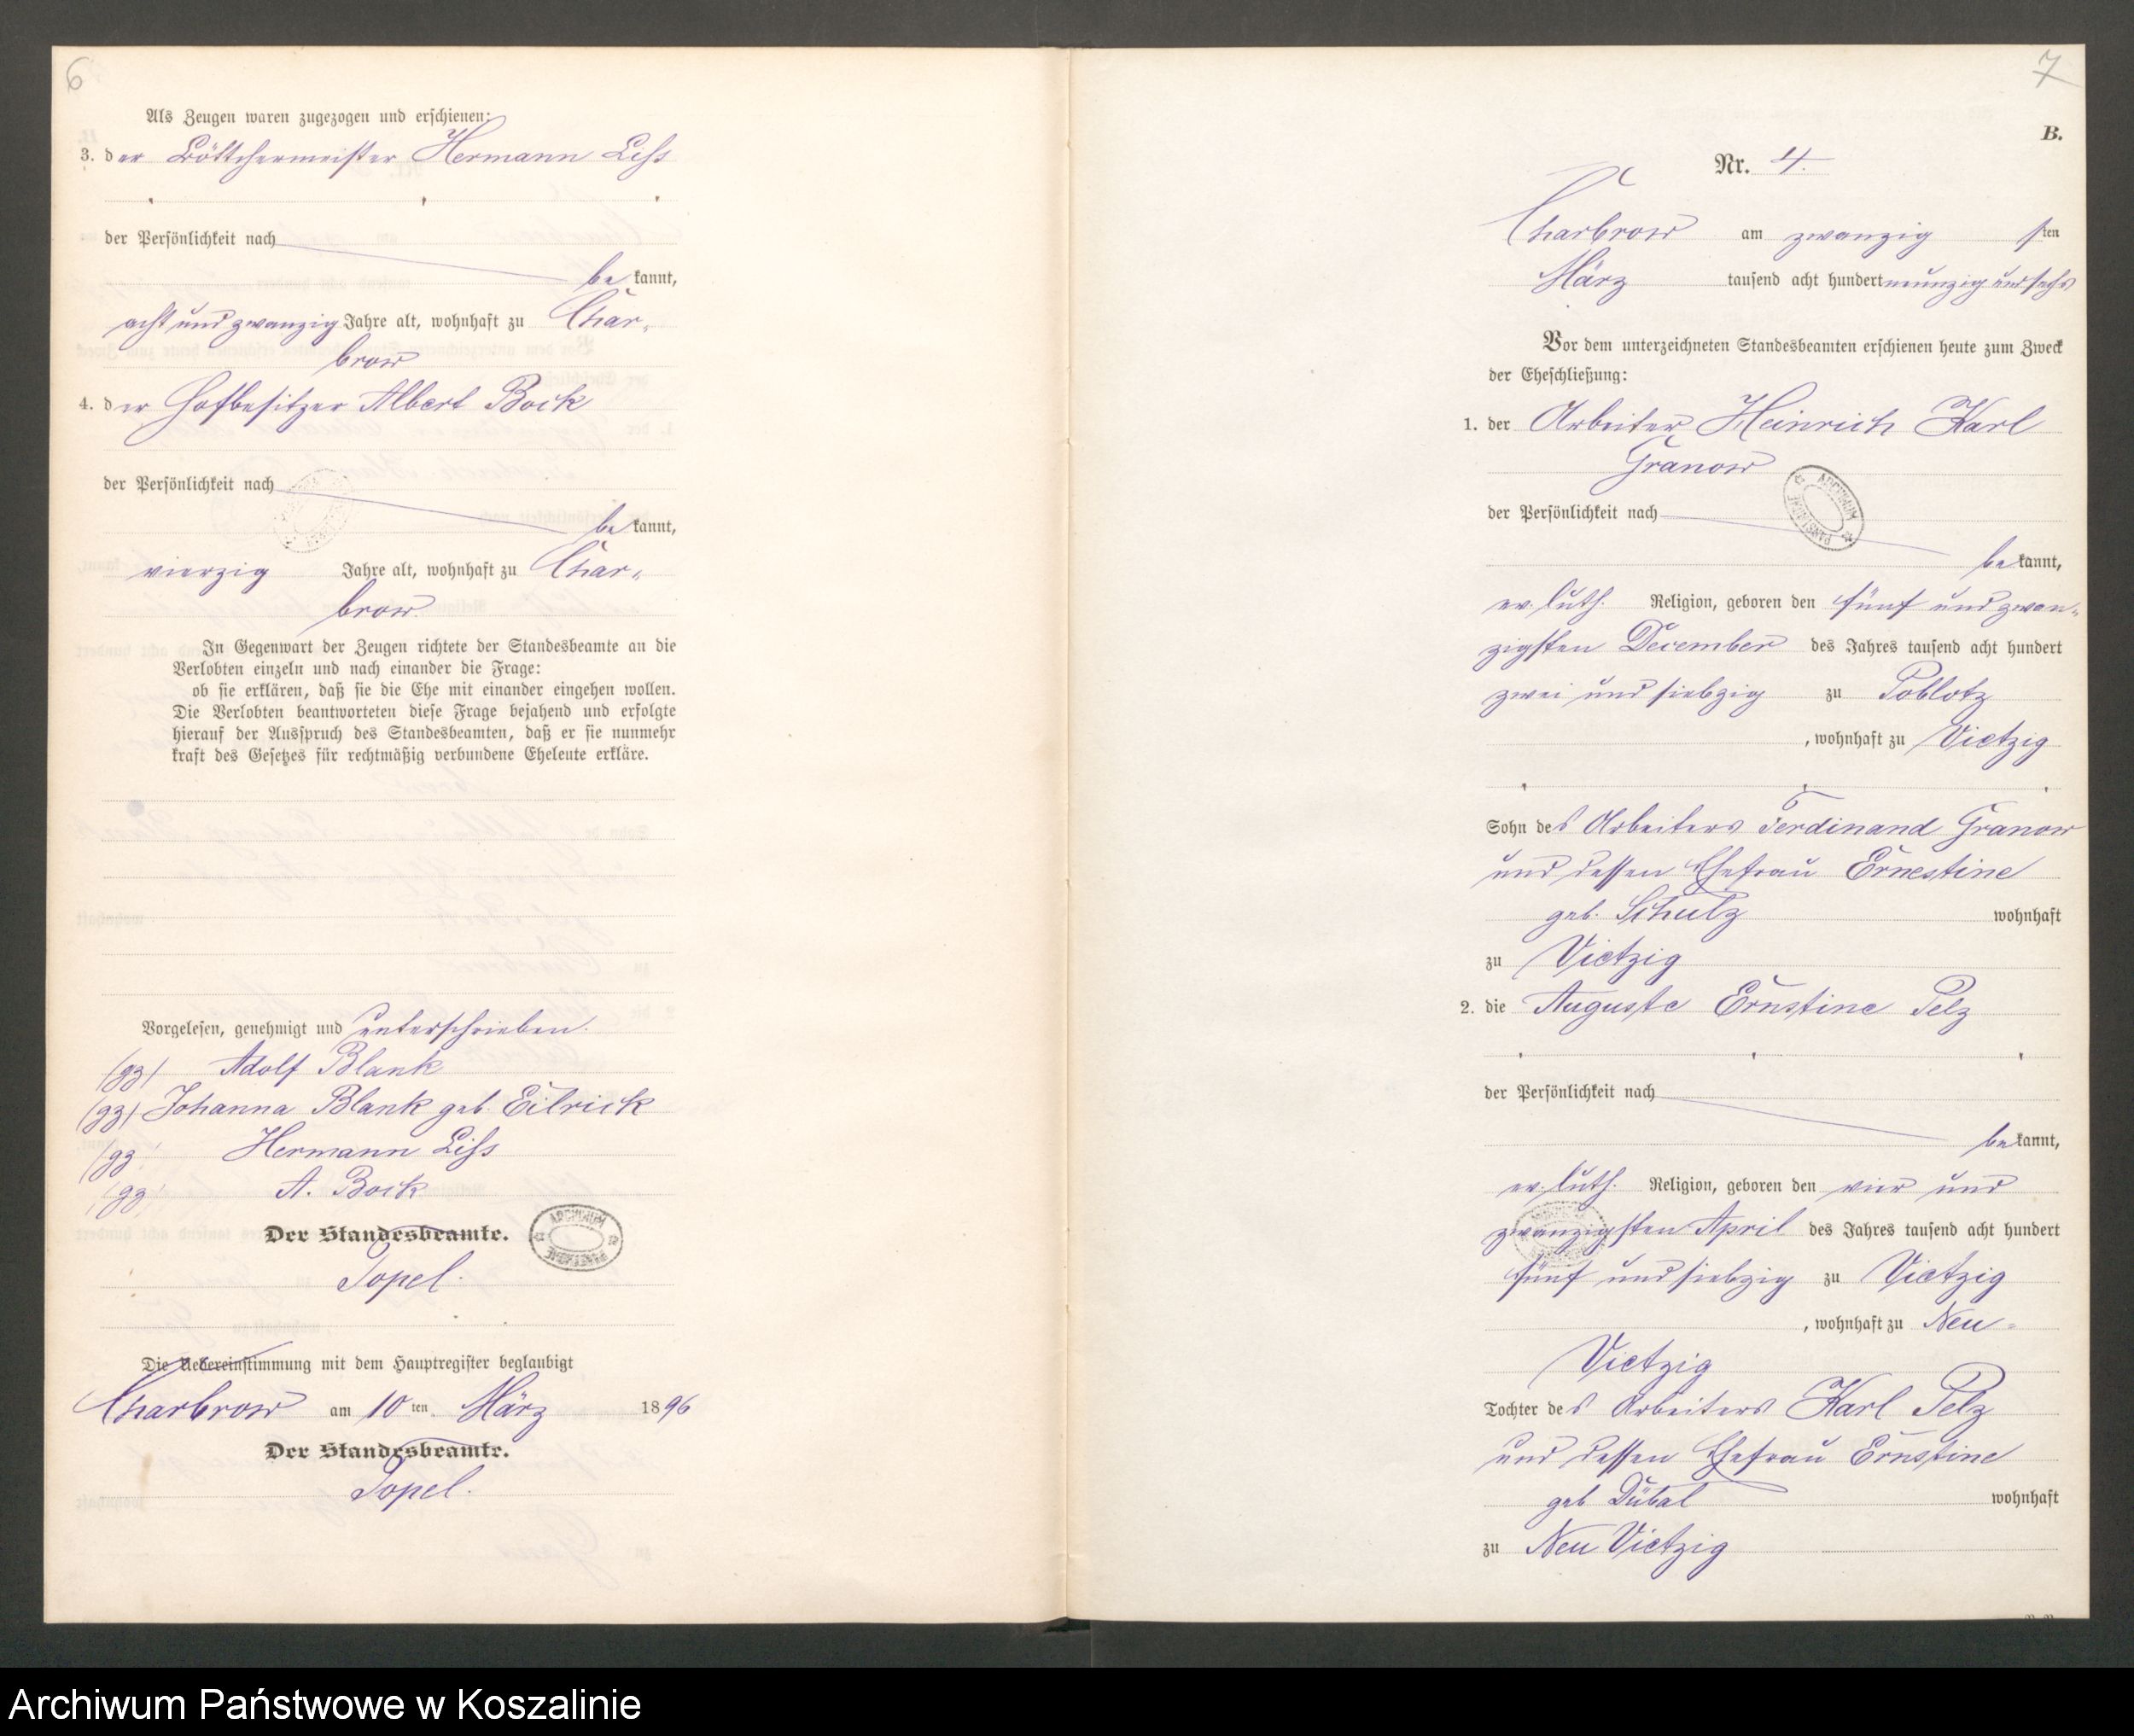 6
Als Zeugen waren zugezogen und erschienen:
3. der Böttchermeister Hermann Liss
der Persönlichkeit nach
bekannt,
acht und zwanzig Jahre alt, wohnhaft zu Char-
brow
4. der Hofbesitzer Albert Bock
der Persönlichkeit nach
bekannt,
vierzig Jahre alt, wohnhaft zu Char-
brow.
In Gegenwart der Zeugen richtete der Standesbeamte an die
Verlobten einzeln und nach einander die Frage:
ob sie erklären, daß sie die Ehe mit einander eingehen wollen.
Die Verlobten beantworteten diese Frage bejahend und erfolgte
hierauf der Ausspruch des Standesbeamten, daß er sie nunmehr
kraft des Gesetzes für rechtmäßig verbundene Eheleute erkläre.
Vorgelesen, genehmigt und unterschrieben.
(gz) Adolf Blank
(gz) Johanna Blank geb. Eilrick
(gz) Hermann Liss
(gz) A. Bock
Der Standesbeamte.
Topel.
Die Uebereinstimmung mit dem Hauptregister beglaubigt
Charbrow am 10ten März 1896
Der Standesbeamte.
Topel.
7
B.
Nr. 4.
Charbrow am zwanzigsten
März tausend acht hundert neunzig und sechs
Vor dem unterzeichneten Standesbeamten erschienen heute zum Zweck
der Eheschließung:
1. der Arbeiter Heinrich Karl
Granow
der Persönlichkeit nach
bekannt,
ev. luth. Religion, geboren den fünf und zwan-
zigsten December des Jahres tausend acht hundert
zwei und siebzig zu Poblotz
, wohnhaft zu Vietzig
Sohn des Arbeiters Ferdinand Granow
und dessen Ehefrau Ernestine
geb. Schulz wohnhaft
zu Vietzig
2. die Auguste Ernstine Pelz
der Persönlichkeit nach
bekannt,
ev. luth. Religion, geboren den vier und
zwanzigsten April des Jahres tausend acht hundert
fünf und siebzig zu Vietzig
, wohnhaft zu Neu-
Vietzig
Tochter des Arbeiters Karl Pelz
und dessen Ehefrau Ernstine
geb Dübal wohnhaft
zu Neu Vietzig
Archiwum Państwowe w Koszalinie